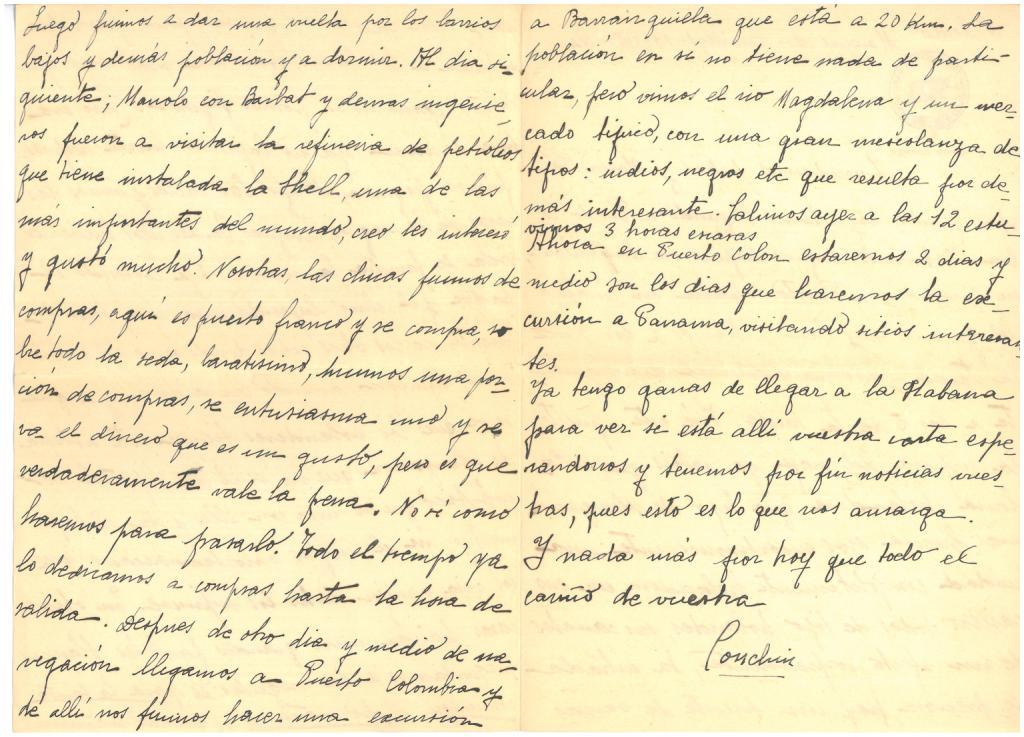 Luego fuimos a dar una vuelta por los barrios
bajos y demás población y a dormir. Al dia si-
guiente; Manolo con Barbat y demas ingenie-
ros fueron a visitar la refineria de petróleos
que tiene instalada la Shell, una de las
más importantes del mundo, creo les interesó
y gustó mucho. Nosotras, las chicas fuimos de
compras, aquí es puerto franco y se compra, so
bre todo la seda, baratisimo, hicimos una por-
ción de compras, se entusiasma uno y se
va el dinero que es un gusto, pero es que
verdaderamente vale la pena. No sé como
haremos para pasarlo. Todo el tiempo ya
lo dedicamos a compras hasta la hora de
salida. Despues de otro dia y medio de na-
vegación llegamos a Puerto Colombia y
de allí nos fuimos hacer una excursión
a Barranquilla que está a 20 Km. La
población en sí no tiene nada de parti-
cular, pero vimos el rio Magdalena y un mer-
cado típico, con una gran mescolanza de
tipos: indios, negros etc que resulta por de
más interesante. Salimos ayer a las 12 estu-
vimos 3 horas escasas
Ahora en Puerto Colon estaremos 2 dias y
medio son los dias que haremos la ex-
cursión a Panama, visitando sitios interesan-
tes.
Ya tengo ganas de llegar a la Habana
para ver si está allí vuestra carta espe-
randonos y tenemos por fin noticias vues-
tras, pues esto es lo que nos amarga.
Y nada más por hoy que todo el
cariño de vuestra
Conchin